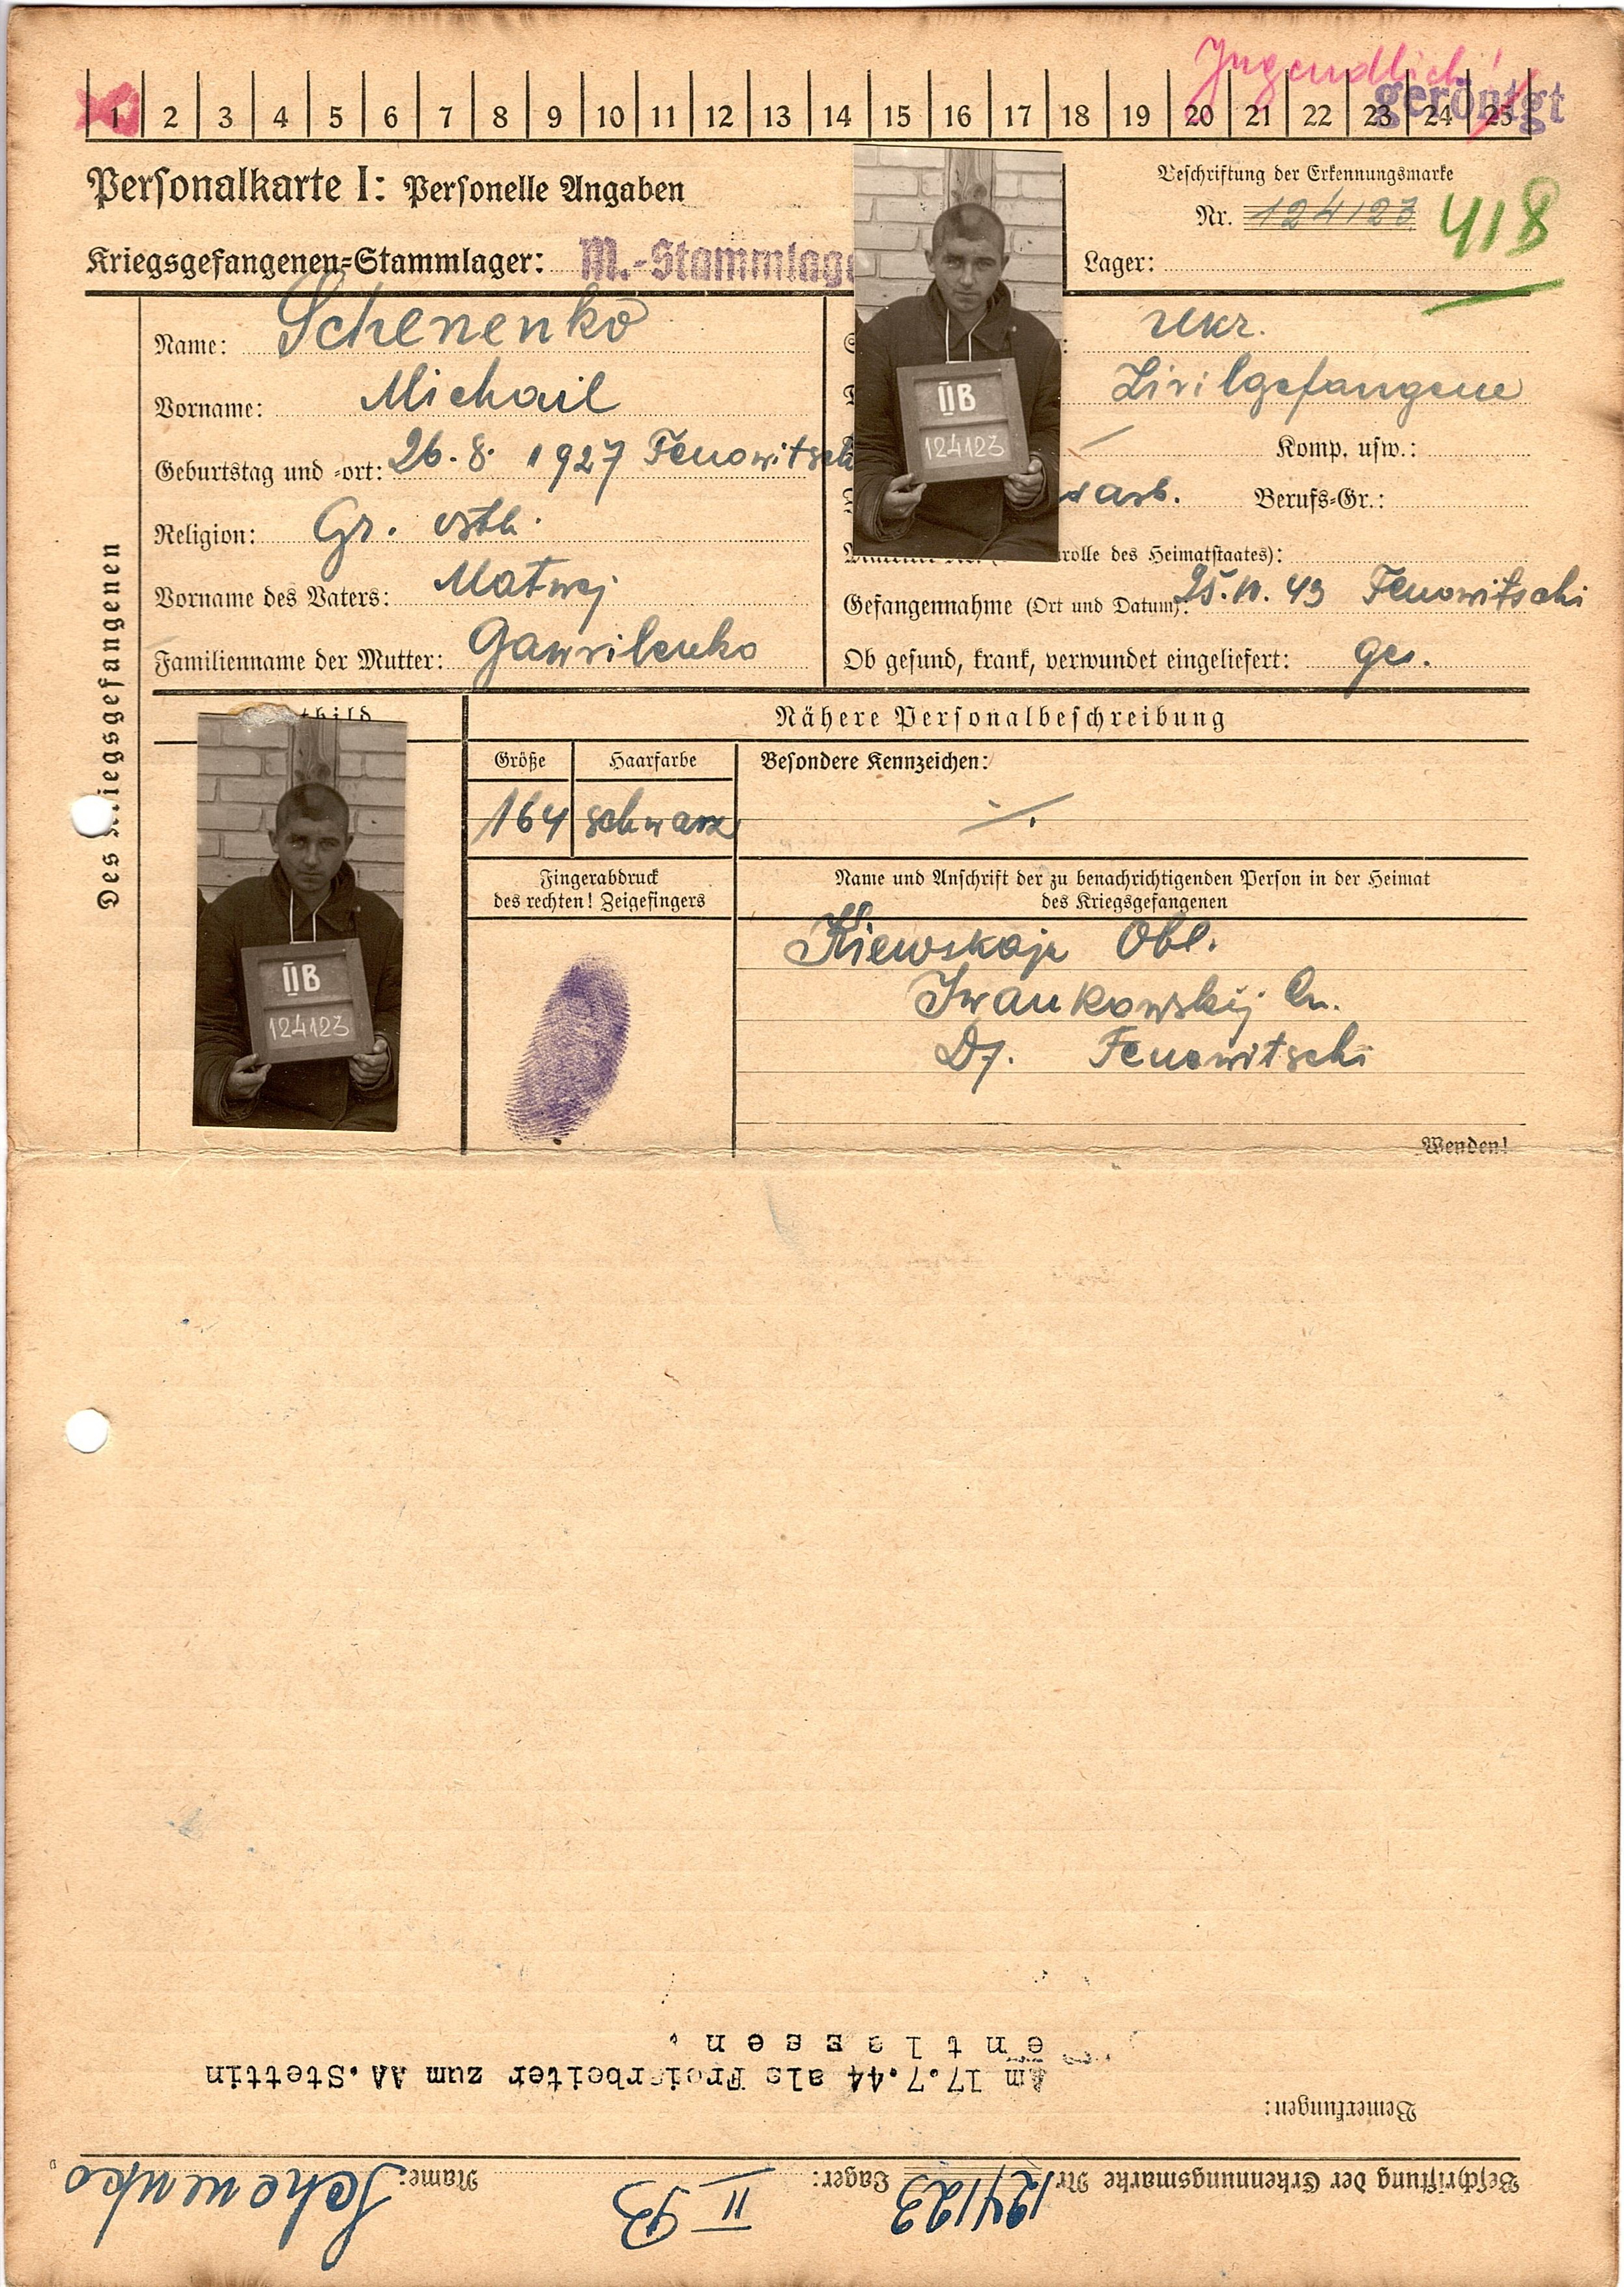 Jugendlich!
geröntgt
1 2 3 4 5 6 7 8 9 10 11 12 13 14 15 16 17 18 19 20 21 22 23 24 25
Personalkarte I: Personelle Angaben
Beschriftung der Erkennungsmarke
Nr. 124123
418
Kriegsgefangenen-Stammlager: M.-Stammlage
Lager:
Des Kriegsgefangenen
Name: Schenenko
Vorname: Michail
Geburtstag und -ort: 26.8.1927 Fenowitsch
Religion: Gr. orth.
Vorname des Vaters: Matwej
Familienname der Mutter: Gawrilenko
Ukr.
Zivilgefangene
Komp. usw.:
arb. Berufs-Gr.:
rolle des Heimatstaates):
Gefangennahme (Ort und Datum): 25.11.43 Fenowitschi
Ob gesund, krank, verwundet eingeliefert: ges.
II B
124123
Nähere Personalbeschreibung
Größe Haarfarbe Besondere Kennzeichen:
164 schwarz
Fingerabdruck
des rechten! Zeigefingers
Name und Anschrift der zu benachrichtigenden Person in der Heimat
des Kriegsgefangenen
Kiewskaja Obl.
Iwankowskij
D. Fenowitschi
II B
124123
Wenden!
Beschriftung der Erkennungsmarke Nr. 124123 Lager: II B Name: Schenenko
Bemerkungen:
Am 17.7.44 als Freiarbeiter zum AA.Stettin
entlassen.